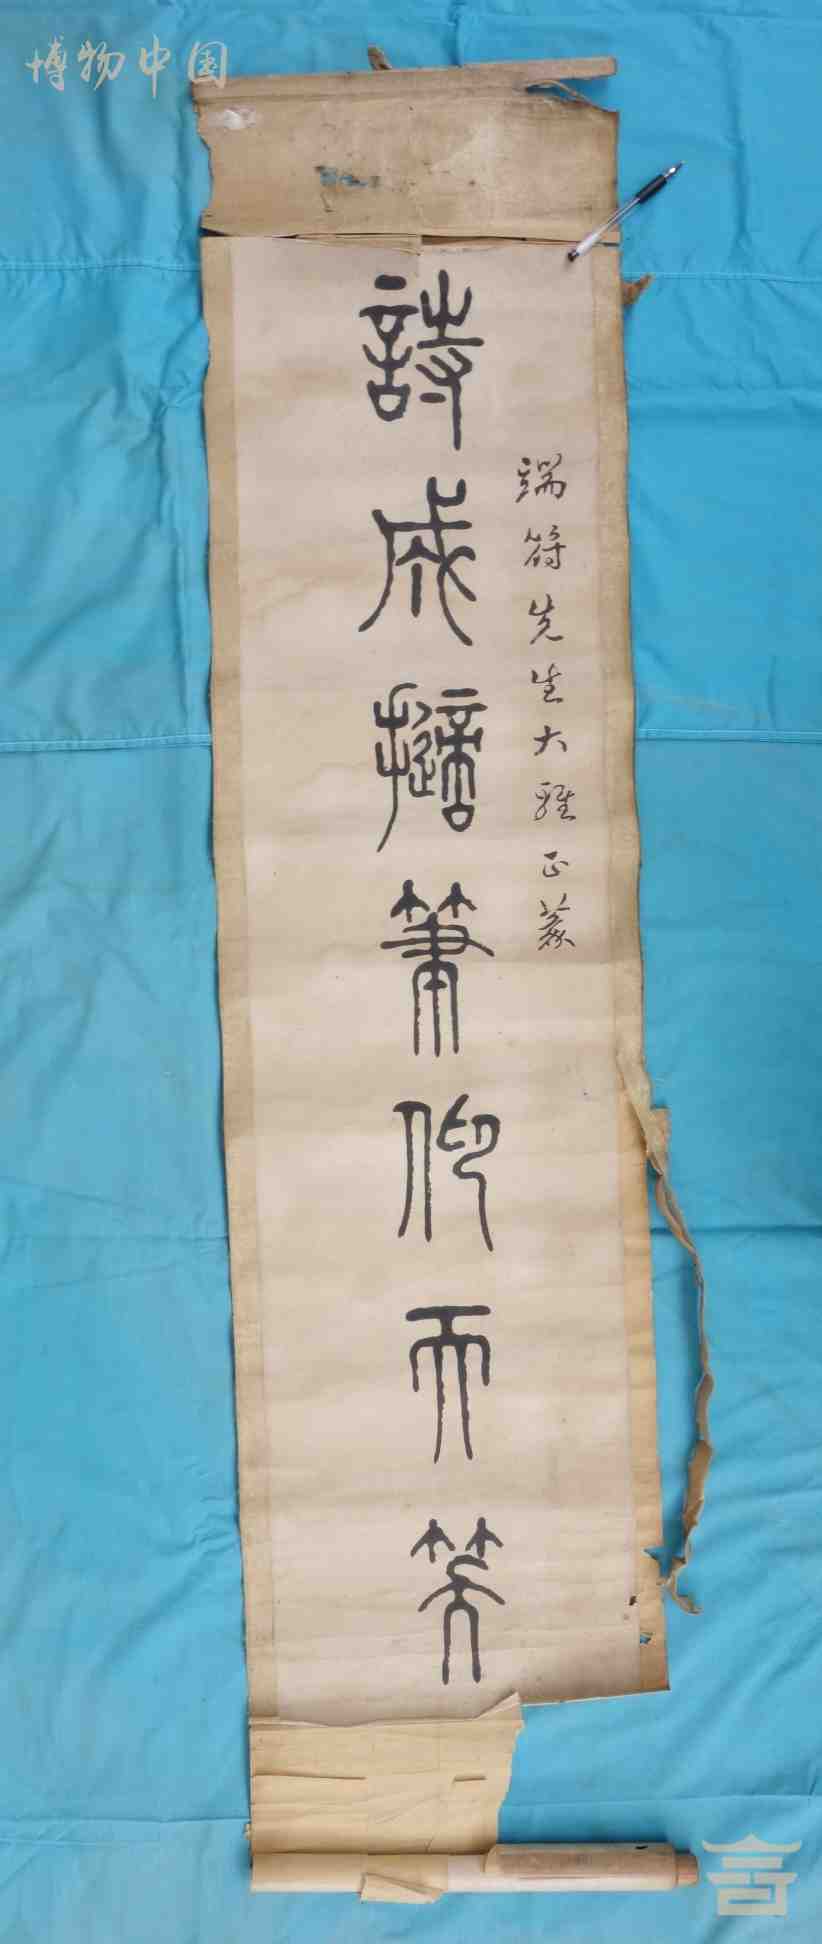 博物中国
端符先生大雅正篆
詩成擲筆仰而笑